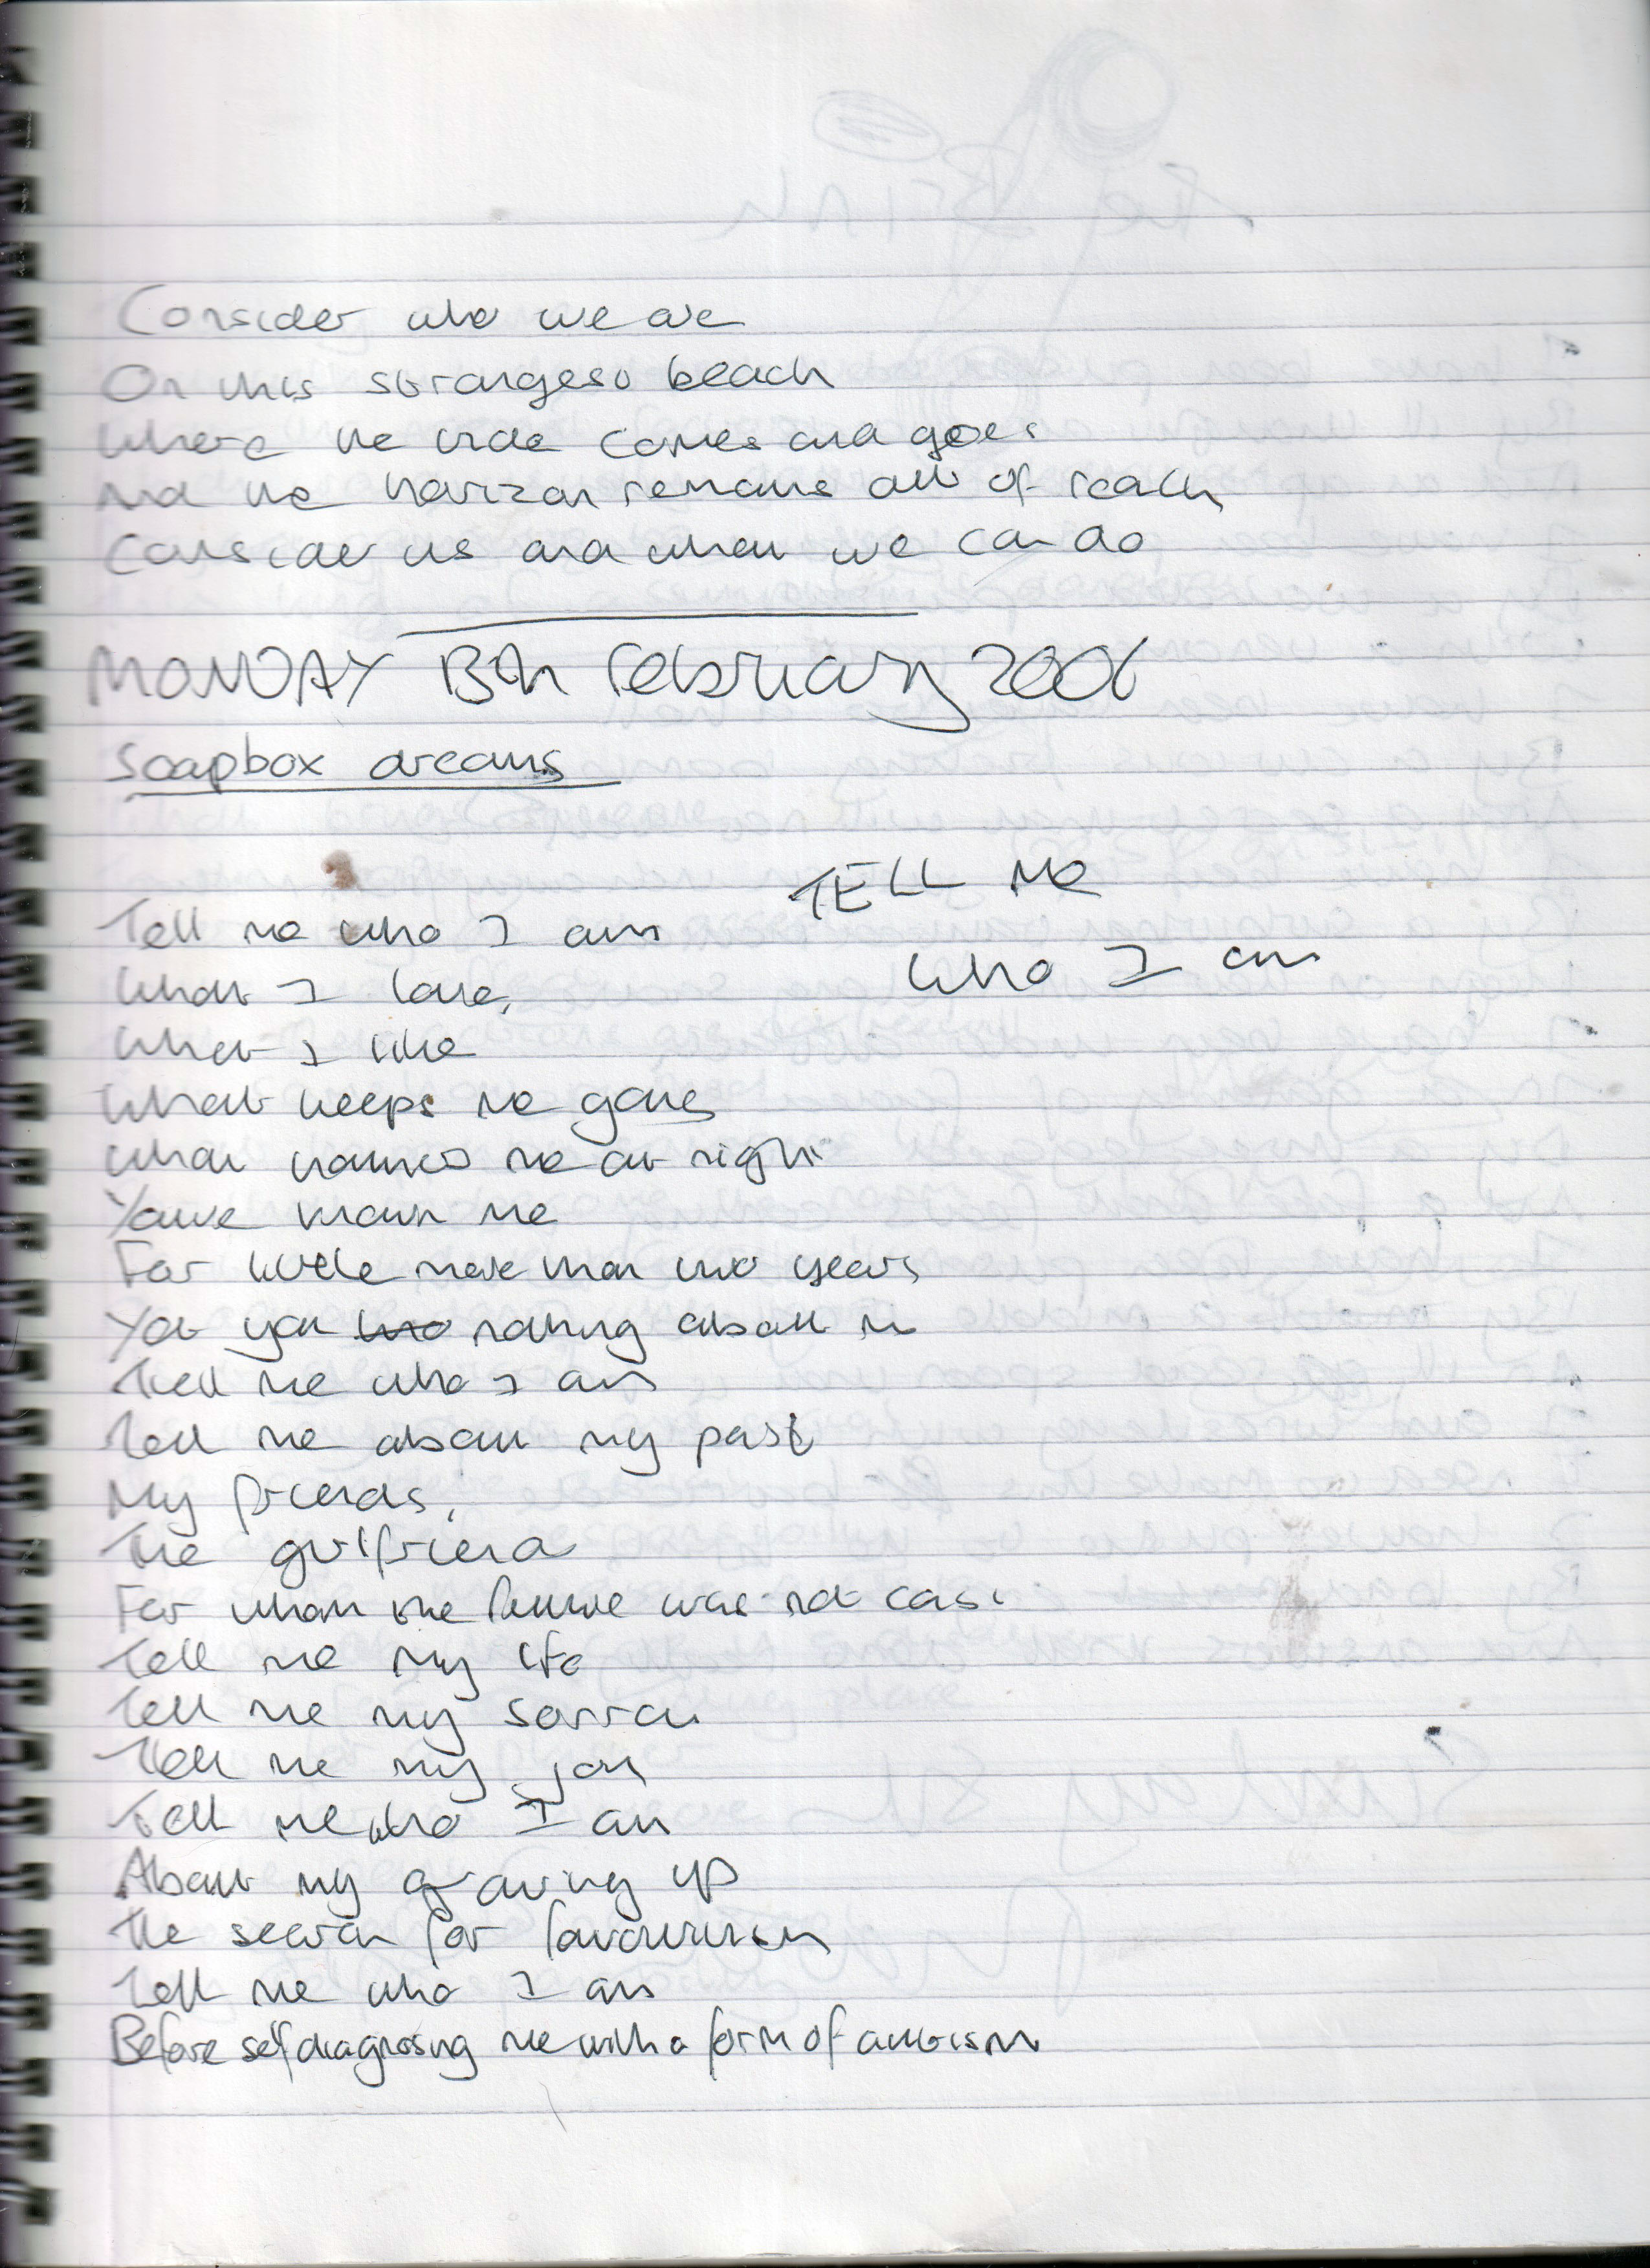 Consider who we are
On this strangest beach
Where the tide comes and goes
And the horizon remains out of reach
Consider us and what we can do
MONDAY 13th February 2006
Soapbox dreams
TELL Me
Who I am
Tell me who I am
What I love,
What I like
What keeps me going
What haunts me at night
You've known me
For little more than two years
Yet you nothing about me
Tell me who I am
Tell me about my past
My friends,
The girlfriend
For whom the future was not cast
Tell me my life
Tell me my sorrow
Tell me my joy
Tell me who I am
About my growing up
The search for favouritism
Tell me who I am
Before self diagnosing me with a form of autism